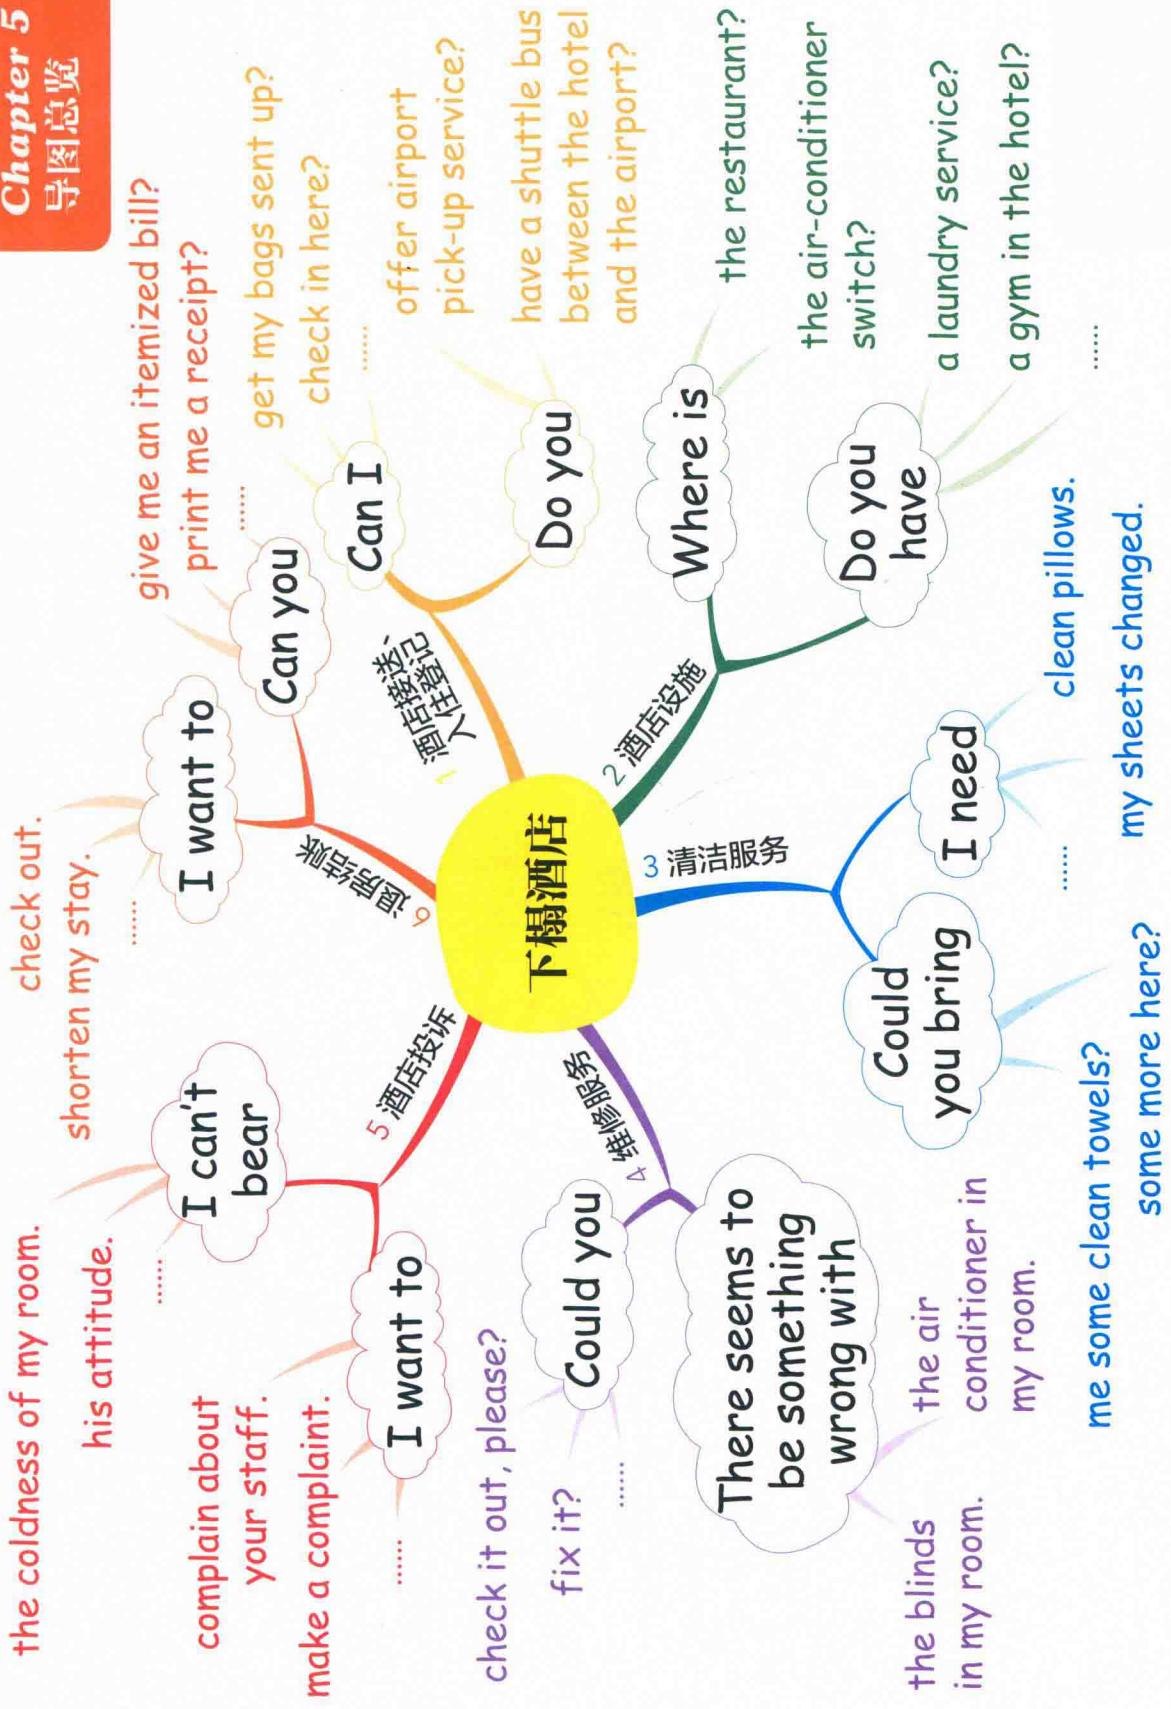 Chapter 5
导图总览
下榻酒店
1 酒店接送、
入住登记
Can I
get my bags sent up?
check in here?
......
Do you
offer airport
pick-up service?
have a shuttle bus
between the hotel
and the airport?
2 酒店设施
Where is
the restaurant?
the air-conditioner
switch?
Do you
have
a laundry service?
a gym in the hotel?
......
3 清洁服务
I need
clean pillows.
my sheets changed.
......
Could
you bring
me some clean towels?
some more here?
4 维修服务
There seems to
be something
wrong with
the air
conditioner in
my room.
the blinds
in my room.
Could you
check it out, please?
fix it?
......
5 酒店投诉
I want to
complain about
your staff.
make a complaint.
......
I can't
bear
the coldness of my room.
his attitude.
......
6 退房结账
I want to
check out.
shorten my stay.
......
Can you
give me an itemized bill?
print me a receipt?
......